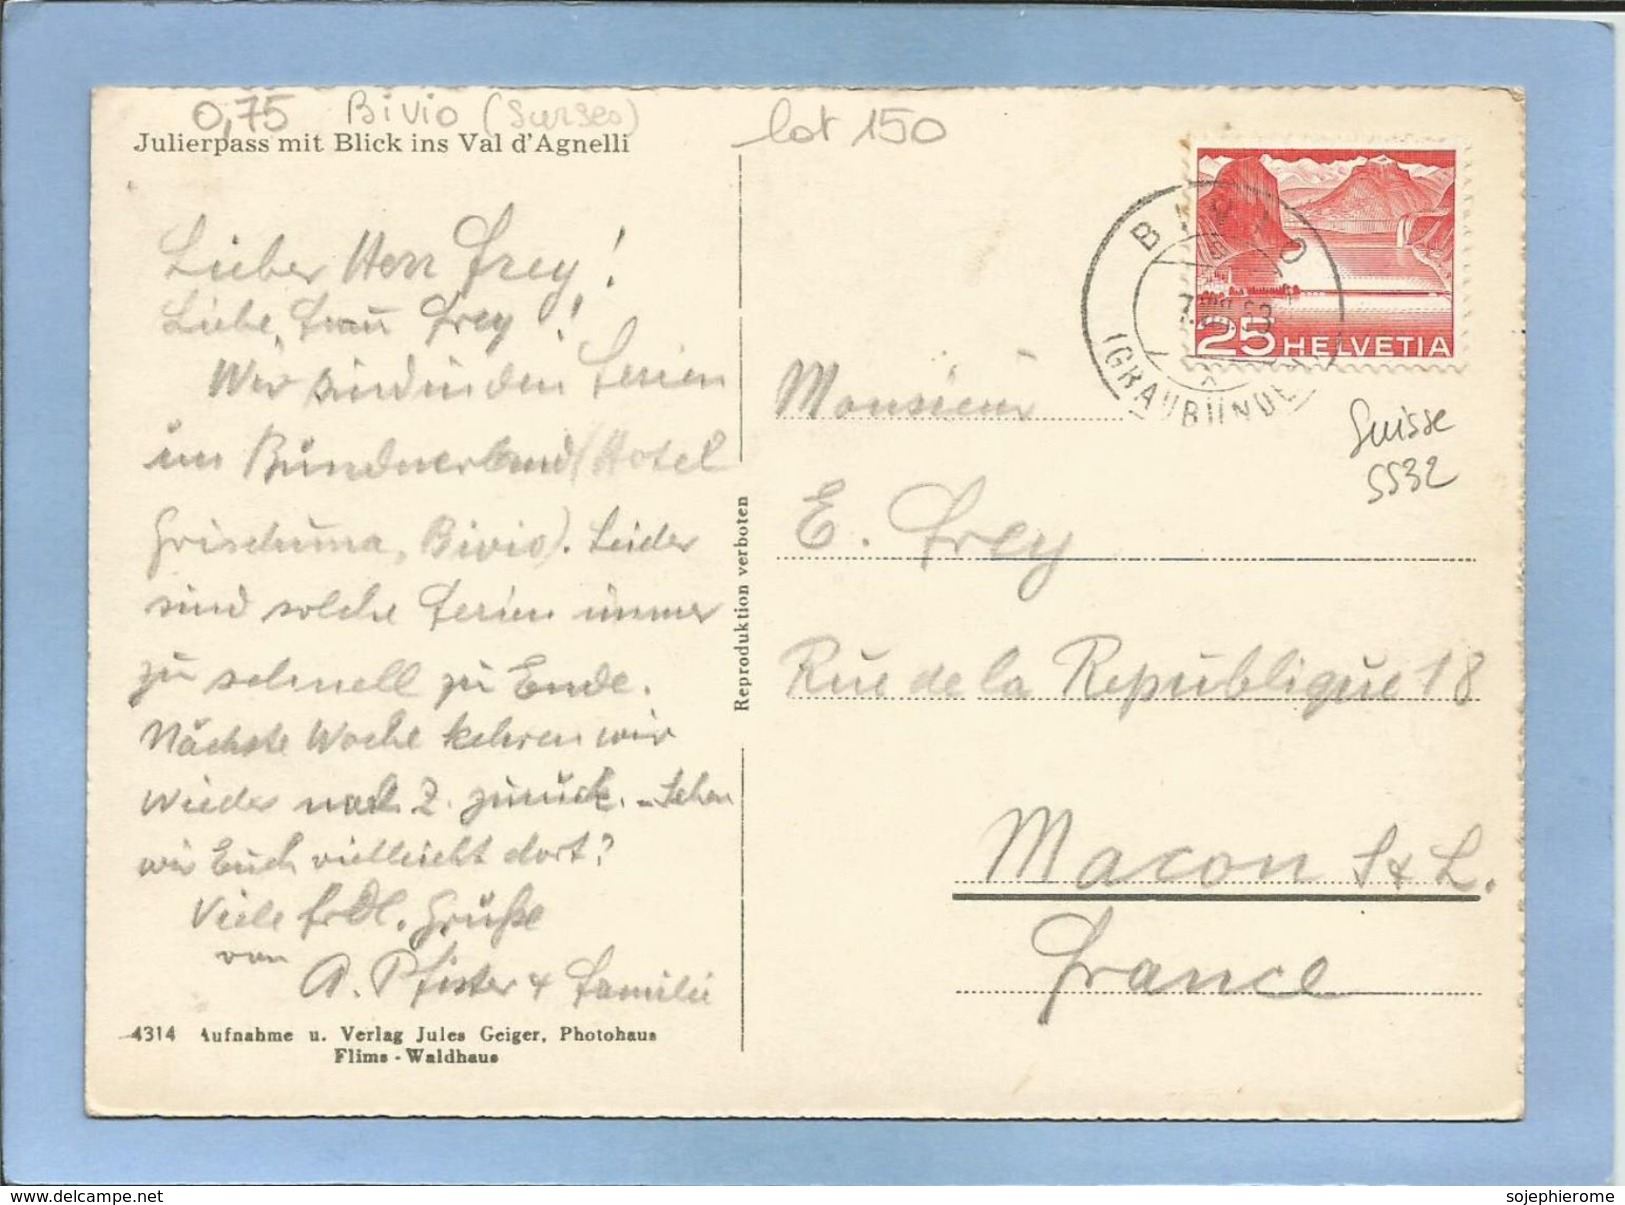 0,75 Bivio (Surses)
lot 150
Julierpass mit Blick ins Val d'Agnelli
Lieber Herr Frey!
Liebe Frau Frey!
Wir sind in den Ferien
im Bündnerland (Hotel
Grischuna, Bivio). Leider
sind solche Ferien immer
zu schnell zu Ende.
Nächste Woche kehren wir
wieder nach Z. zurück. - Sehen
wir Euch vielleicht dort?
Viele frdl. Grüße
von
A. Pfister & Familie
4314 Aufnahme u. Verlag Jules Geiger, Photohaus
Flims - Waldhaus
Reproduktion verboten
BIVIO
(GRAUBÜNDEN)
25 HELVETIA
Suisse
5532
Monsieur
E. Frey
Rue de la République 18
Macon S & L.
France
www.delcampe.net
sojephierome